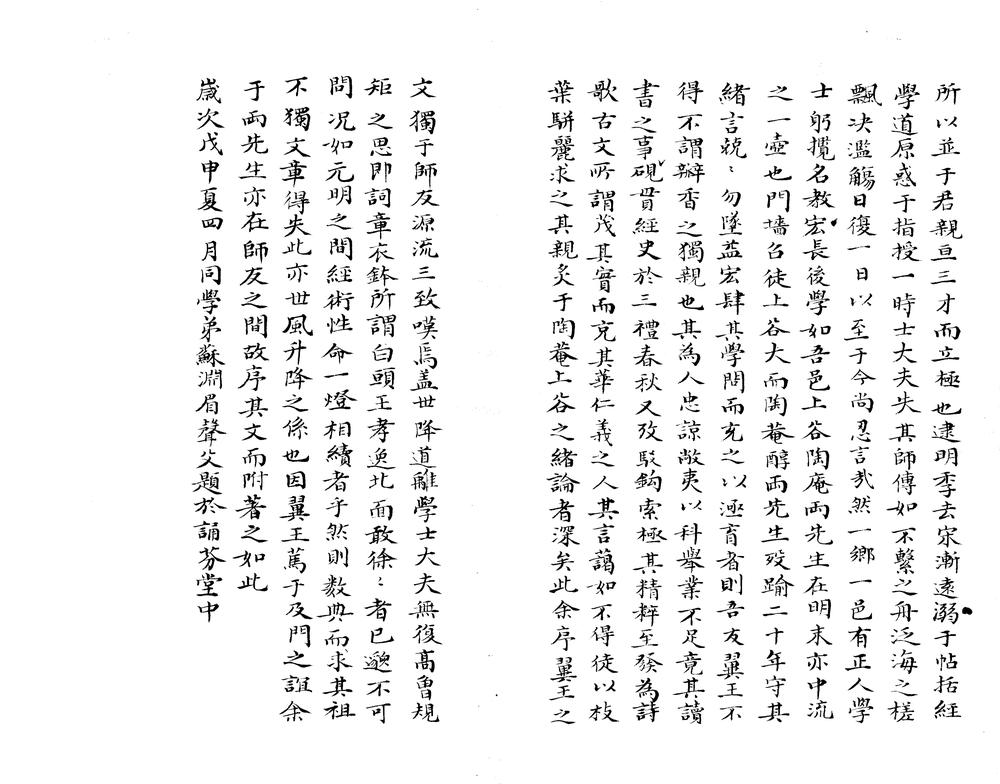 所以並于君親亘三才而立極也逮明季去宋漸遠溺于帖括經
學道原惑于指授一時士大夫失其師傳如不繫之舟泛海之槎
飄決濫觴日復一日以至于今尚忍言哉然一鄉一邑有正人學
士躬攬名教宏長後學如吾邑上谷陶庵兩先生在明末亦中流
之一壺也門墻召徒上谷大而陶菴醇兩先生歿踰二十年守其
緒言兢〻勿墜益宏肆其學問而充之以逐育者則吾友翼王不
得不謂瓣香之獨親也其為人忠諒敞夷以科舉業不足竟其讀
書之事硯貫經史於三禮春秋又攷駁鈎索極其精粹至發為詩
歌古文所謂茂其實而充其華仁義之人其言藹如不得徒以枝
葉駢麗求之其親炙于陶菴上谷之緒論者深矣此余序翼王之
文獨于師友源流三致嘆焉盖世降道離學士大夫無復高曾規
矩之思即詞章衣鉢所謂白頭王孝逸北面敢徐〻者已邈不可
問况如元明之間經術性命一燈相續者乎然則数典而求其祖
不獨文章得失此亦世風升降之係也因翼王篤于及門之誼余
于兩先生亦在師友之間故序其文而附著之如此
歲次戊申夏四月同學弟蘇淵眉聲父題於誦芬堂中